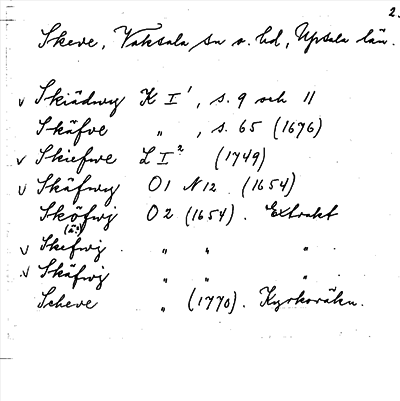 2.
Skeve, Vaksala sn o. hd, Upsala län.
v Skiädwy K I¹, s. 9 och 11
Skäfve " , s. 65 (1676)
v Skiefwe L I² (1749)
v Skäfwy O1 N12 (1654)
Sköfwj O2 (1654). Extrakt
(ä?)
v Skefwj " " " .
v Skäfwj " " " .
Scheve " (1770). Kyrkoräkn.